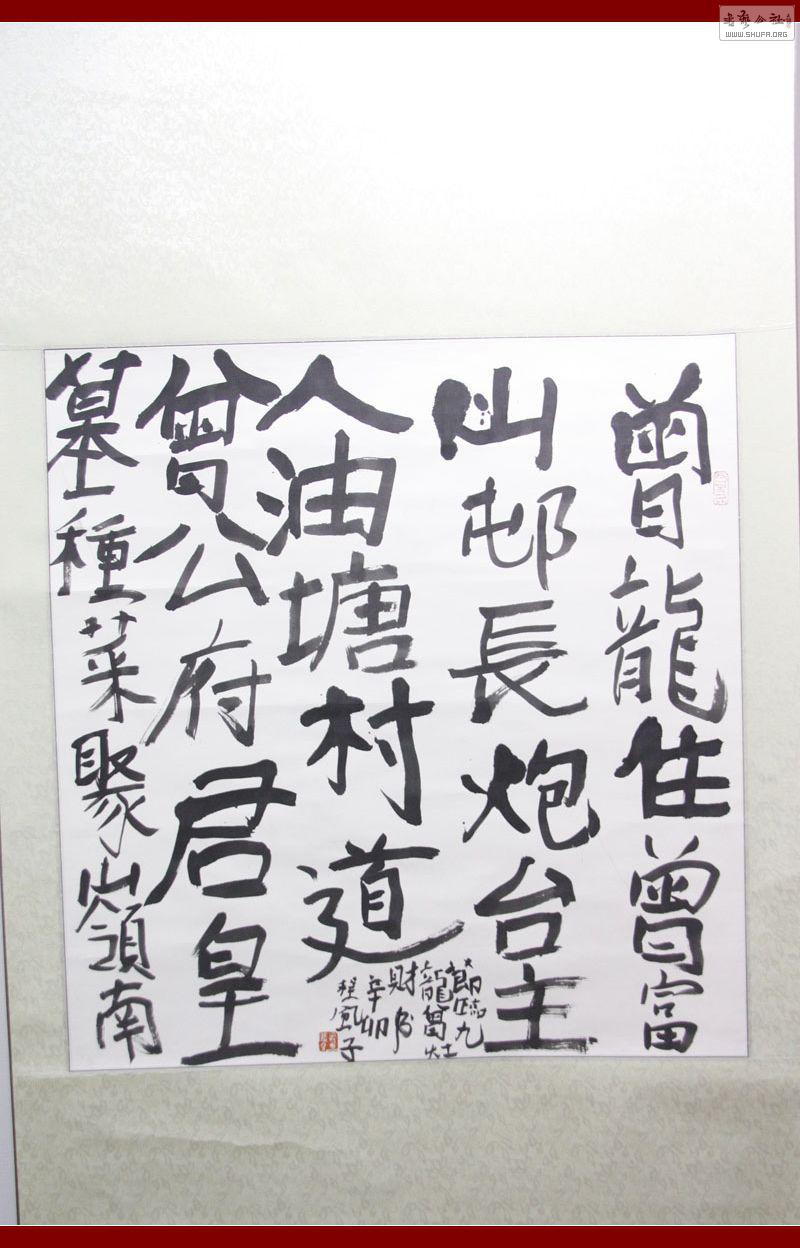 曾龍住曾富
邨長炮台主
人油塘村道
曾公府君皇
墓種菜聚嶺南
節臨九
龍灶
財书
辛卯
風子
书艺公社
WWW.SHUFA.ORG